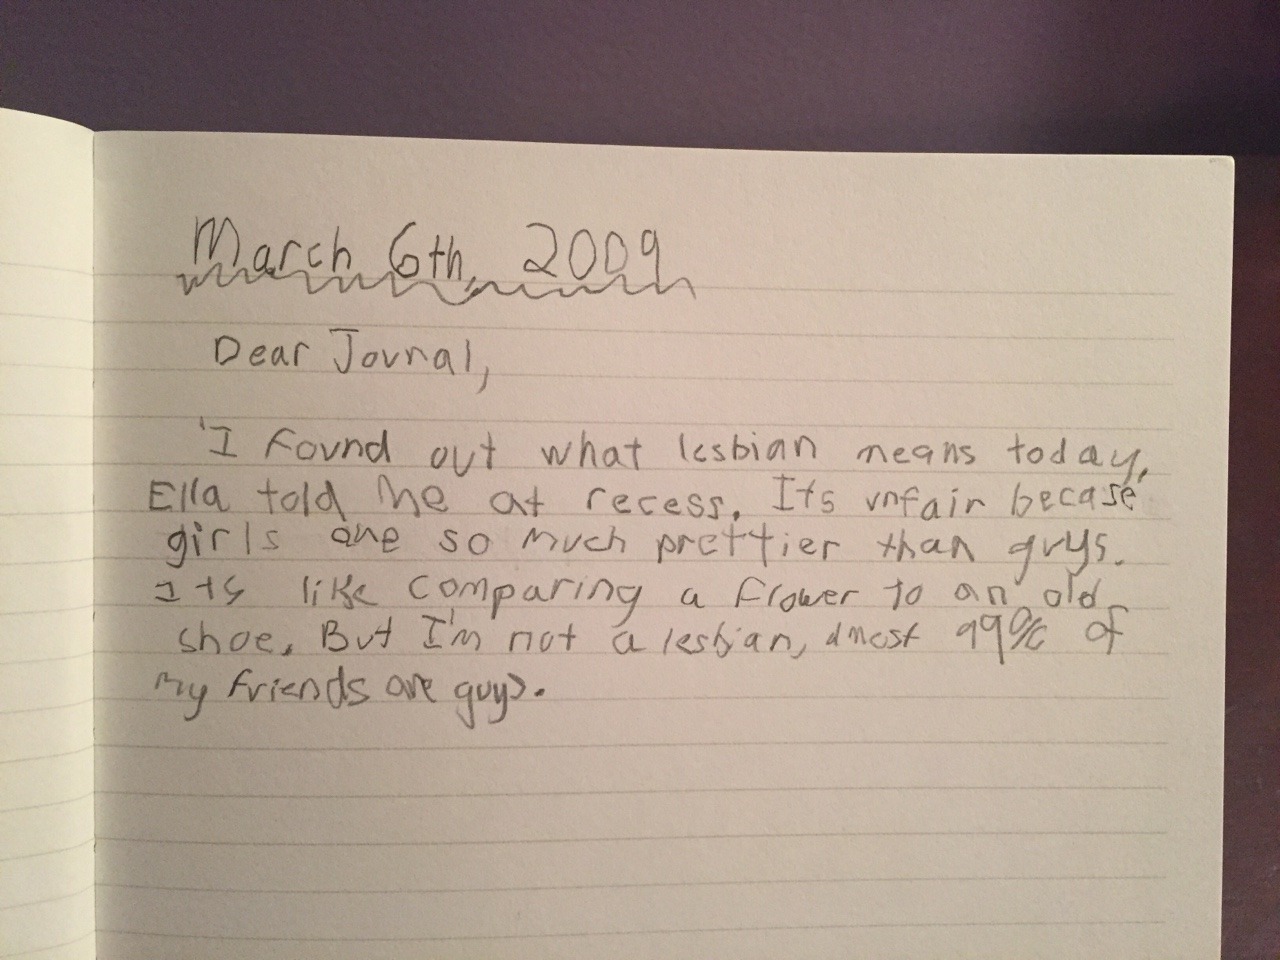 March 6th, 2009
Dear Journal,
I found out what lesbian means today,
Ella told me at recess. Its unfair becase
girls are so much prettier than guys.
Its like comparing a flower to an old
shoe. But I'm not a lesbian, almost 99% of
my friends are guys.